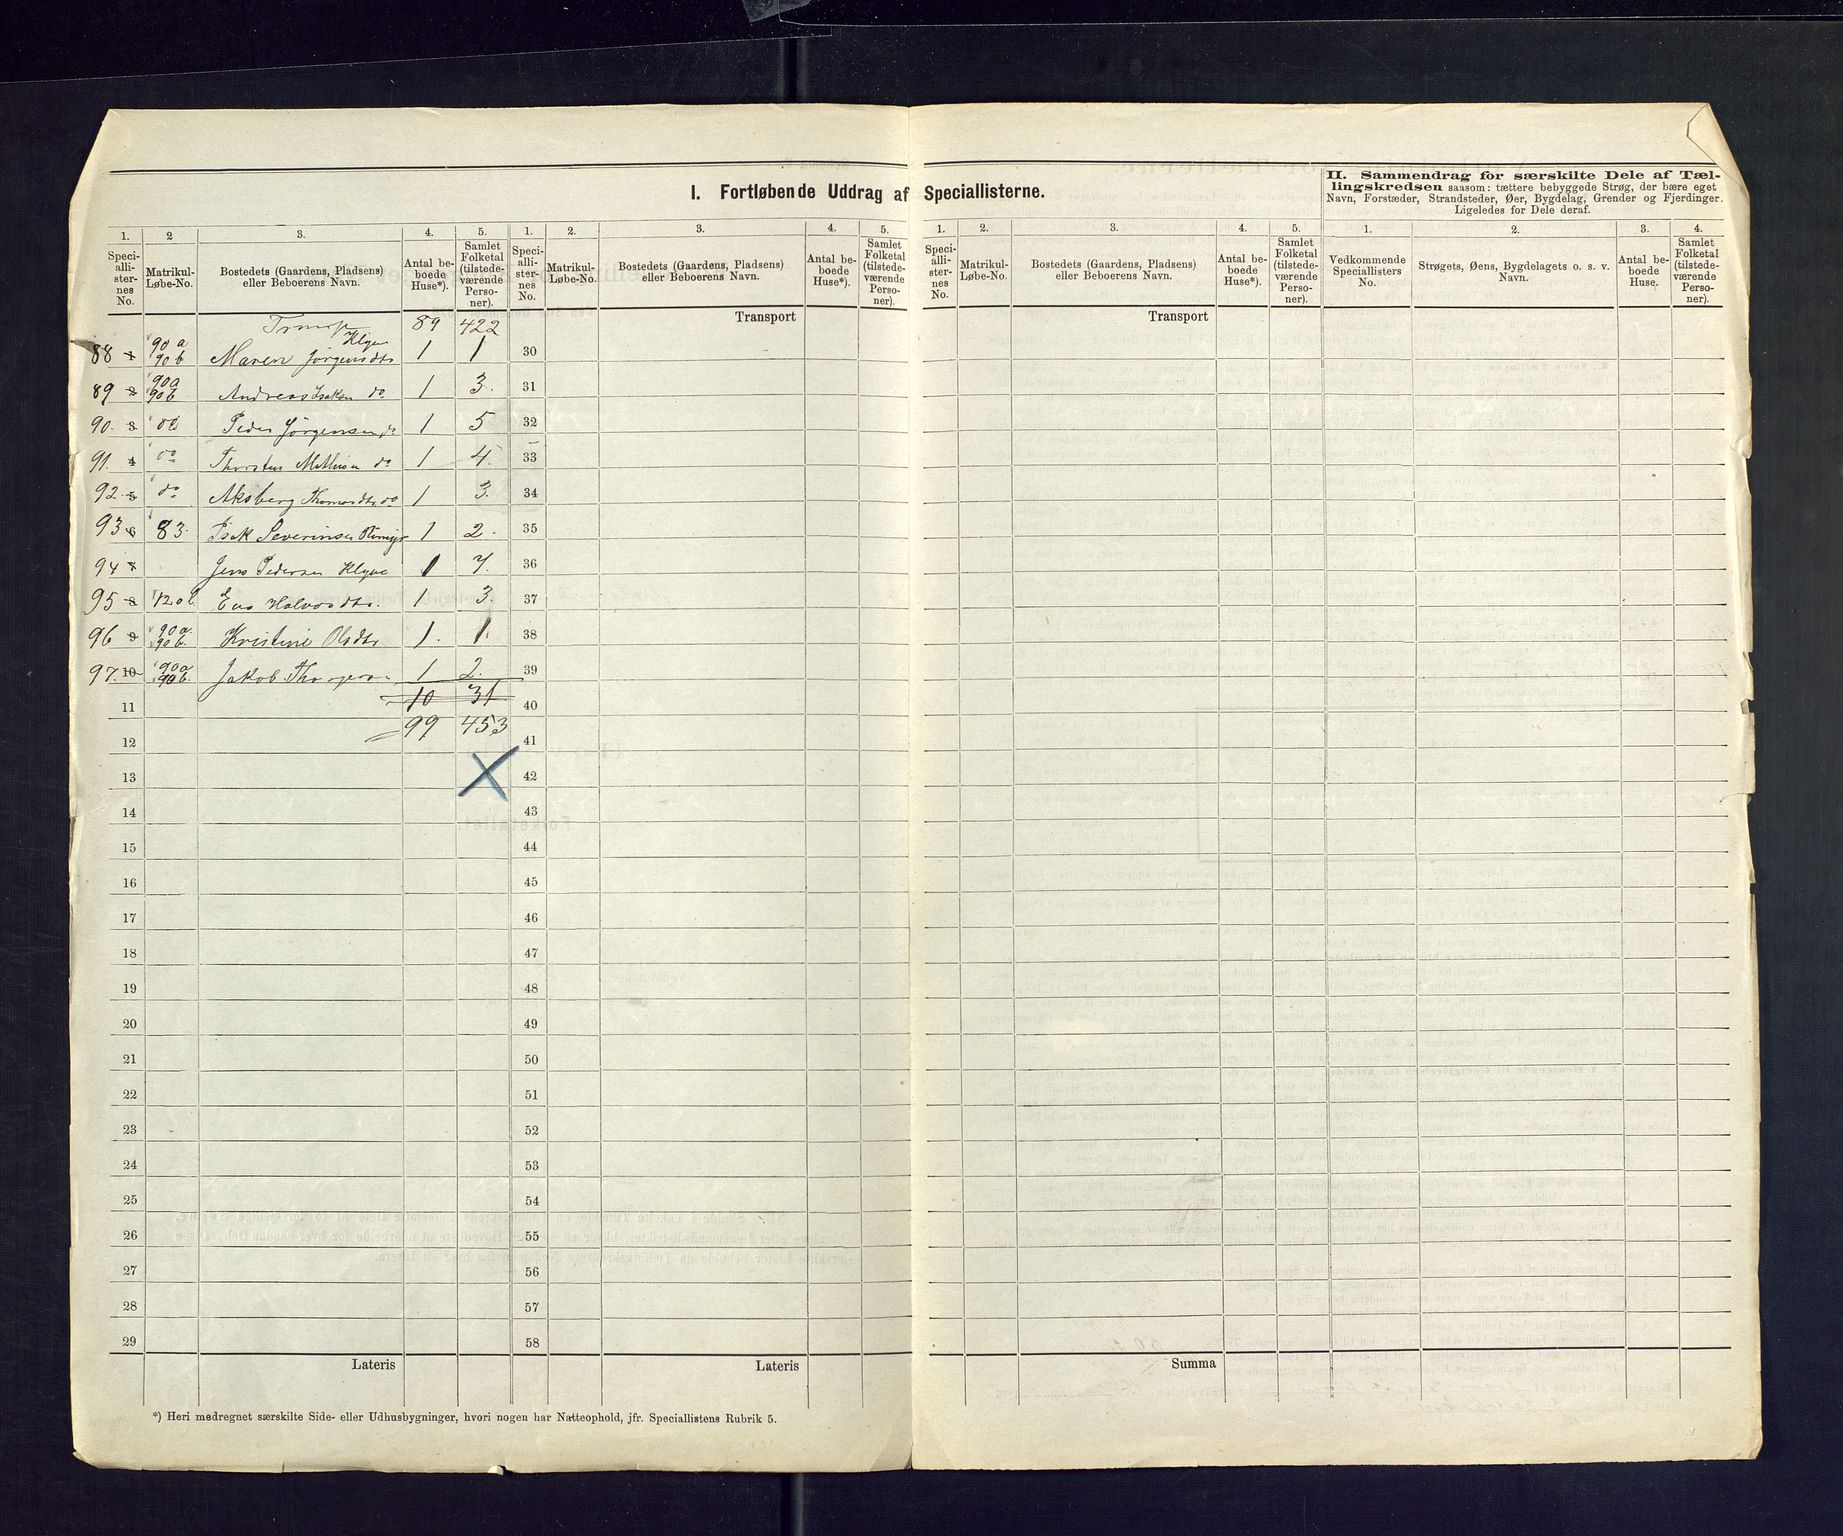 I. Fortløbende Uddrag af Speciallisterne.
II. Sammendrag for særskilte Dele af Tællingskredsen saasom: tættere bebyggede Strøg, der bære eget
Navn, Forstæder, Strandsteder, Øer, Bygdelag, Grender og Fjerdinger.
Ligeledes for Dele deraf.
1. 2 3. 4. 5. 1. 2. 3. 4. 5. 1. 2. 3. 4. 5. 1. 2. 3. 4.
Speciallisternes No. Matrikul-Løbe-No. Bostedets (Gaardens, Pladsens) eller Beboerens Navn. Antal beboede Huse*). Samlet Folketal (tilstedeværende Personer).
Speciallisternes No. Matrikul-Løbe-No. Bostedets (Gaardens, Pladsens) eller Beboerens Navn. Antal beboede Huse*). Samlet Folketal (tilstedeværende Personer).
Speciallisternes No. Matrikul-Løbe-No. Bostedets (Gaardens, Pladsens) eller Beboerens Navn. Antal beboede Huse*). Samlet Folketal (tilstedeværende Personer).
Vedkommende Speciallisters No. Strøgets, Øens, Bygdelagets o. s. v. Navn. Antal beboede Huse. Samlet Folketal (tilstedeværende Personer).
Transp 89 422 Transport Transport
88 1 90 a 90 b Maren Jørgensdtr Klyve 1 1 30
89 2 90a 90b Andreas Isaksen do 1 3. 31
90. 3 do Peder Jørgensen do 1 5 32
91. 4 do Thorsten Mathisen do 1 4. 33
92. 5 do Aksberg Thomasdtr do 1 3. 34
93 6 83. Isak Severinsen 1 2. 35
94 7 Jens Pedersen Klyve 1 7. 36
95 8 120 Eva Halvorsdtr. 1 3. 37
96 9 90a. 90b. Kristine Olsdtr 1. 1. 38
97. 10 90a 90b. Jakob 1 2. 39
11 10 31 40
12 99 453 41
13 42
14 43
15 44
16 45
17 46
18 47
19 48
20 49
21 50
22 51
23 52
24 53
25 54
26 55
27 56
28 57
29 58
Lateris Lateris Summa
*) Heri medregnet særskilte Side- eller Udhusbygninger, hvori nogen har Natteophold, jfr. Speciallistens Rubrik 5.